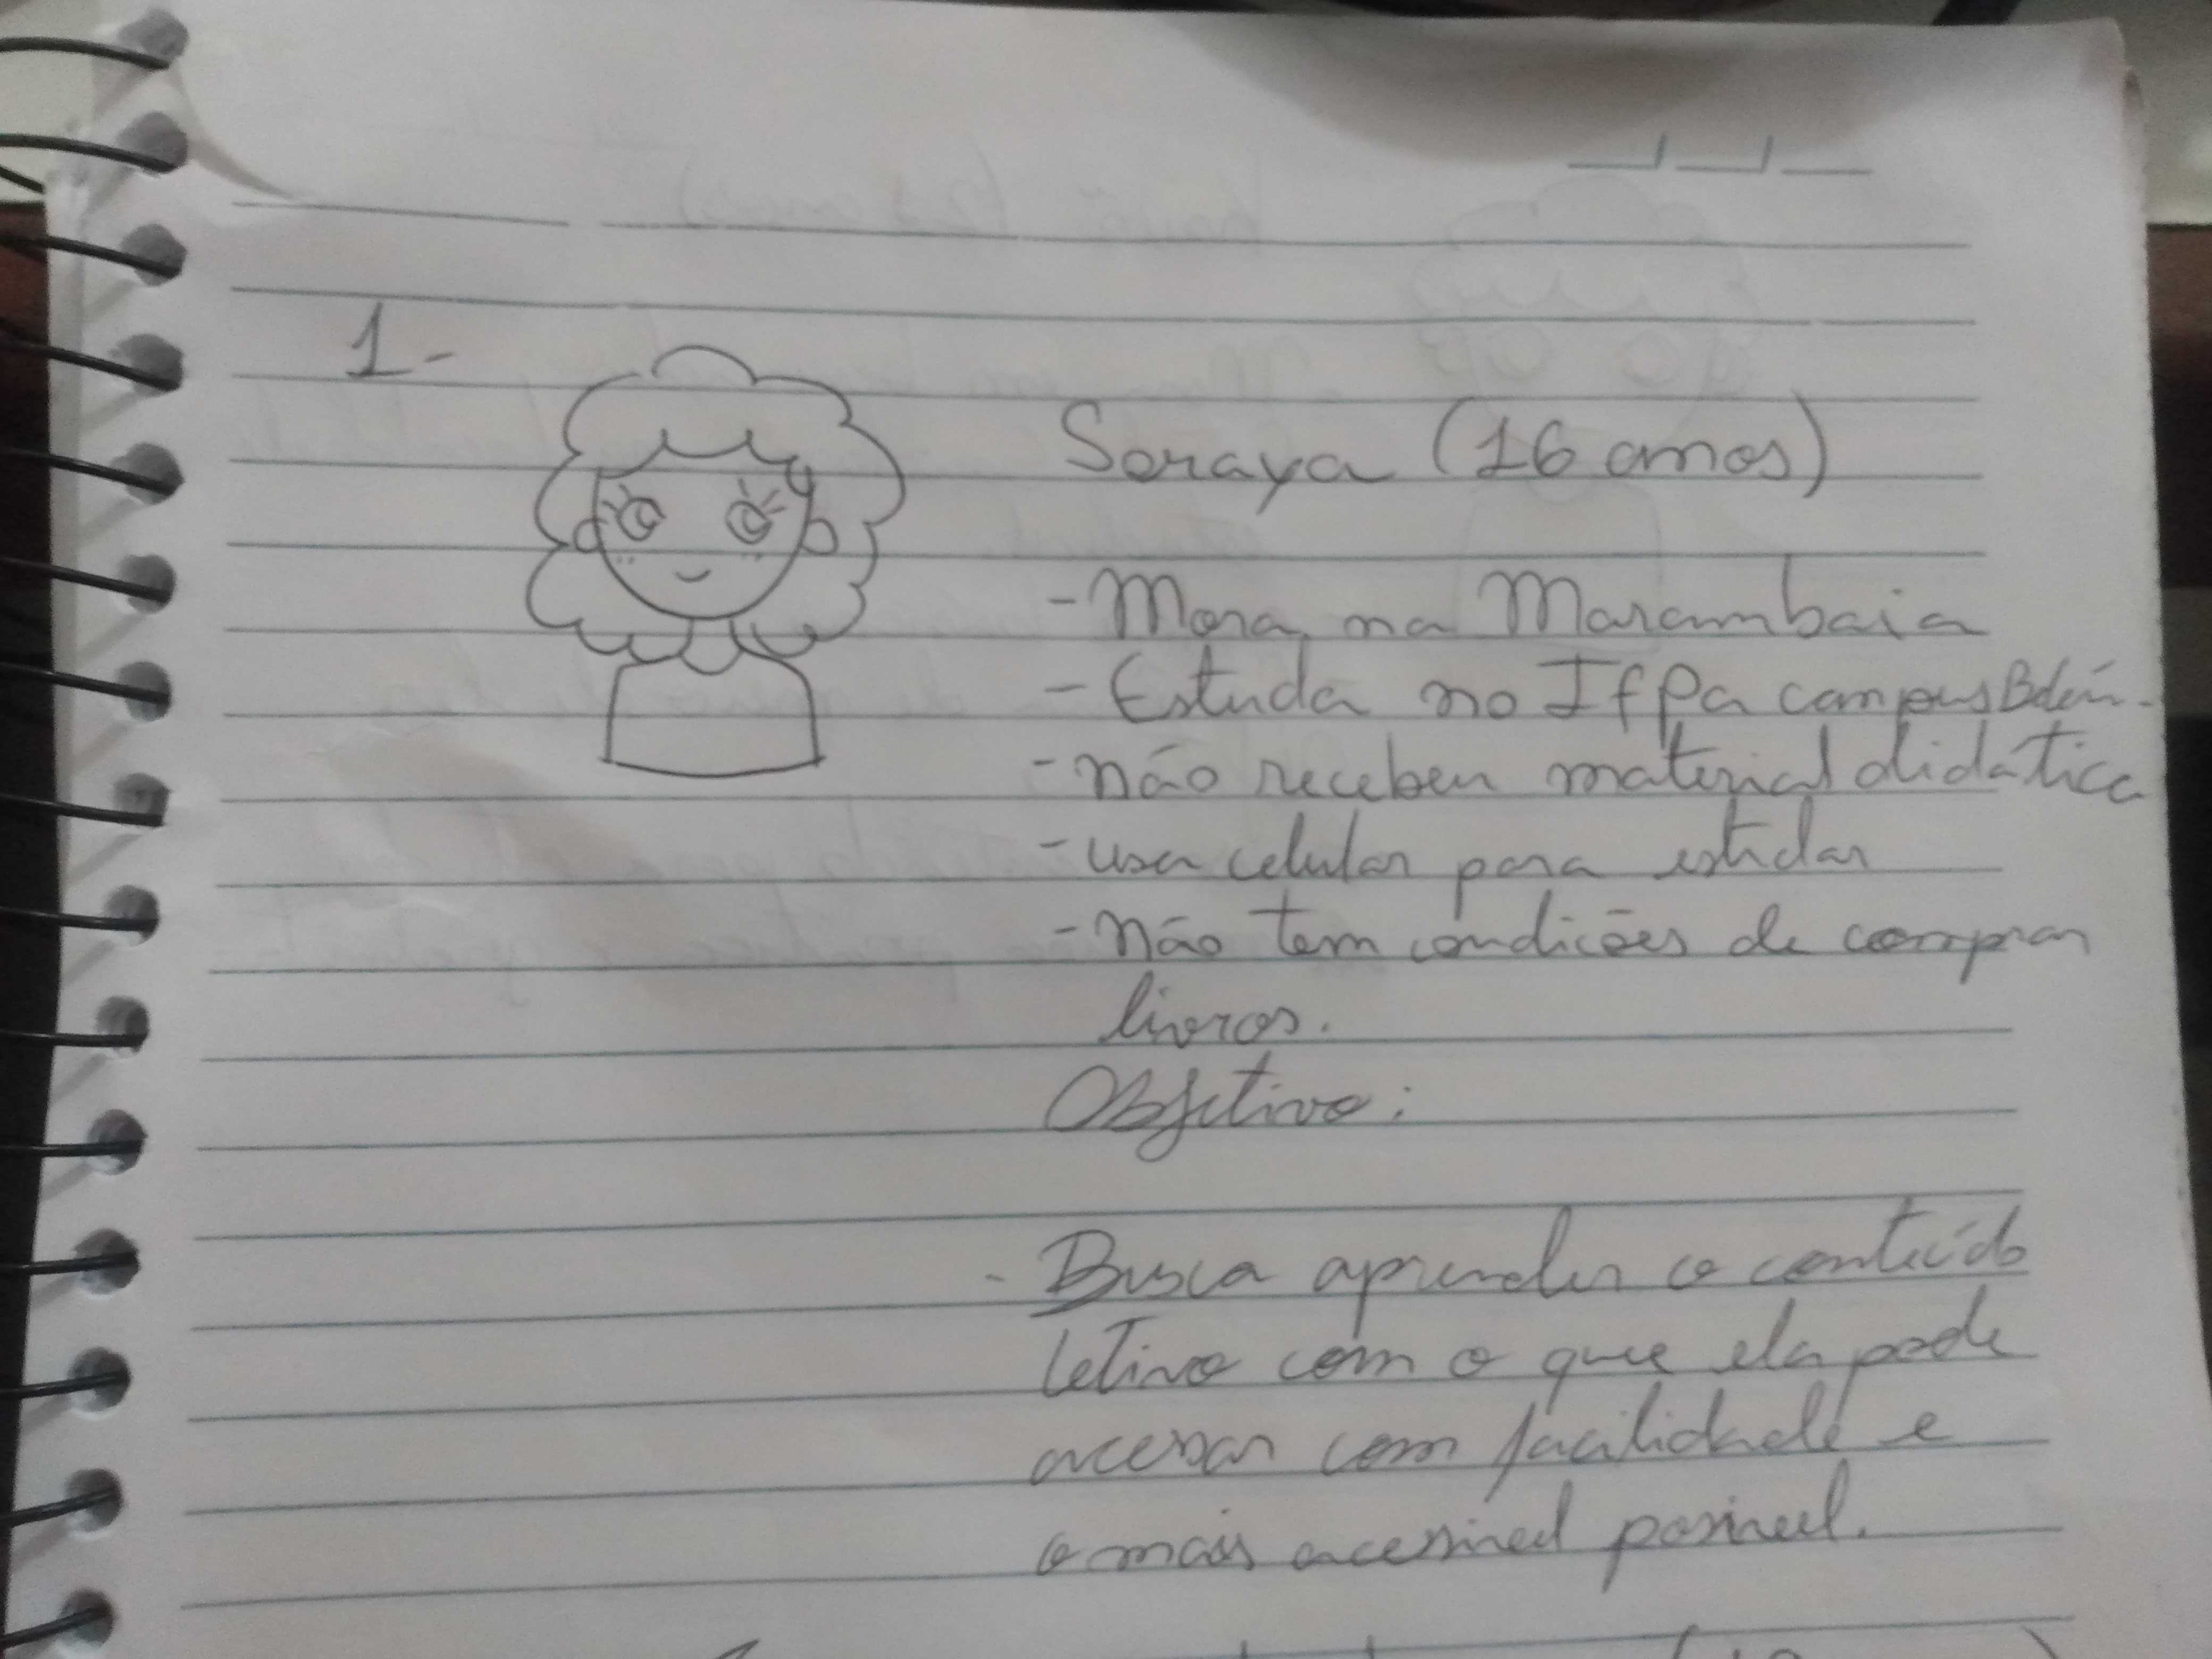 1-
Soraya (16 anos)
- Mora na Marambaia
- Estuda no Ifpa campus Belém.
- não recebeu material didática
- usa celular para estudar
- não tem condições de comprar
livros.
Objetivo:
- Busca aprender o conteúdo
letivo com o que ela pode
acessar com facilidade e
o mais acessível possível.